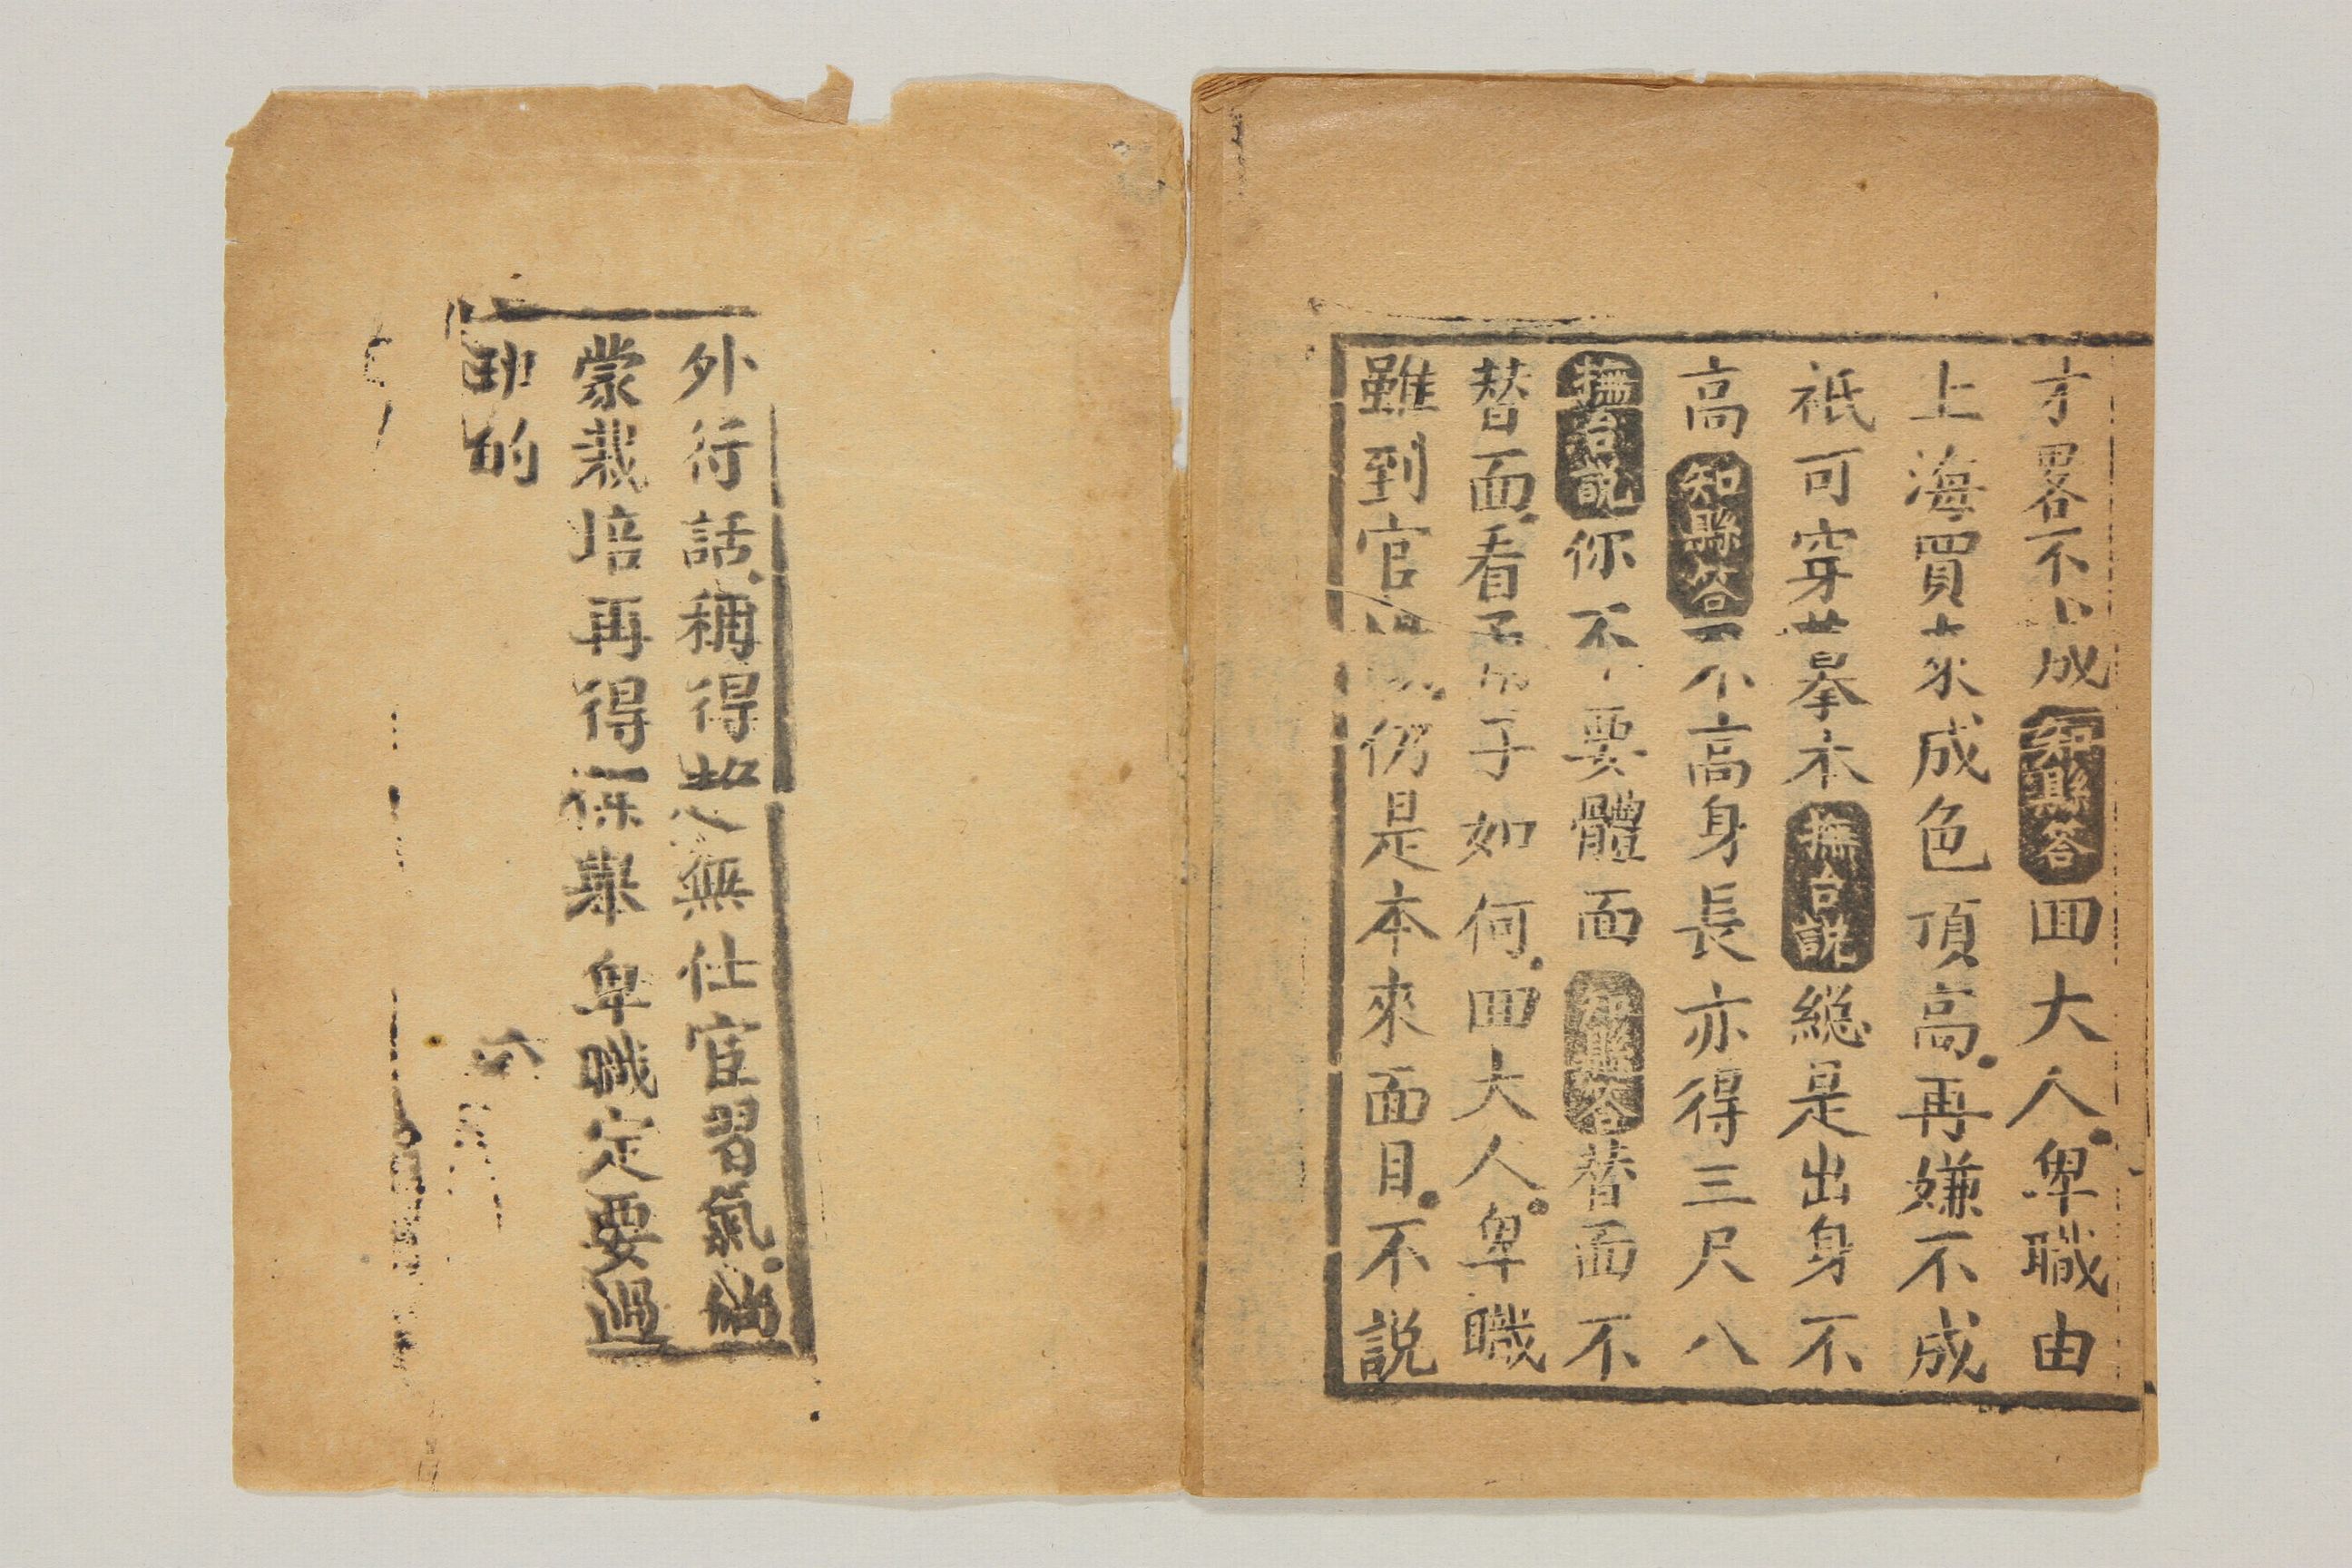 才畧不成知縣答回大人卑職由
上海買來成色頂高再嫌不成
祇可穿摹本撫台說総是出身不
高知縣答不高身長亦得三尺八
撫台說你不要體面知縣答替面不
替面看子如何回大人卑職
雖到官仍是本來面目不説
外行話稱得起無仕宦習氣
蒙栽培再得保舉卑職定要過
的